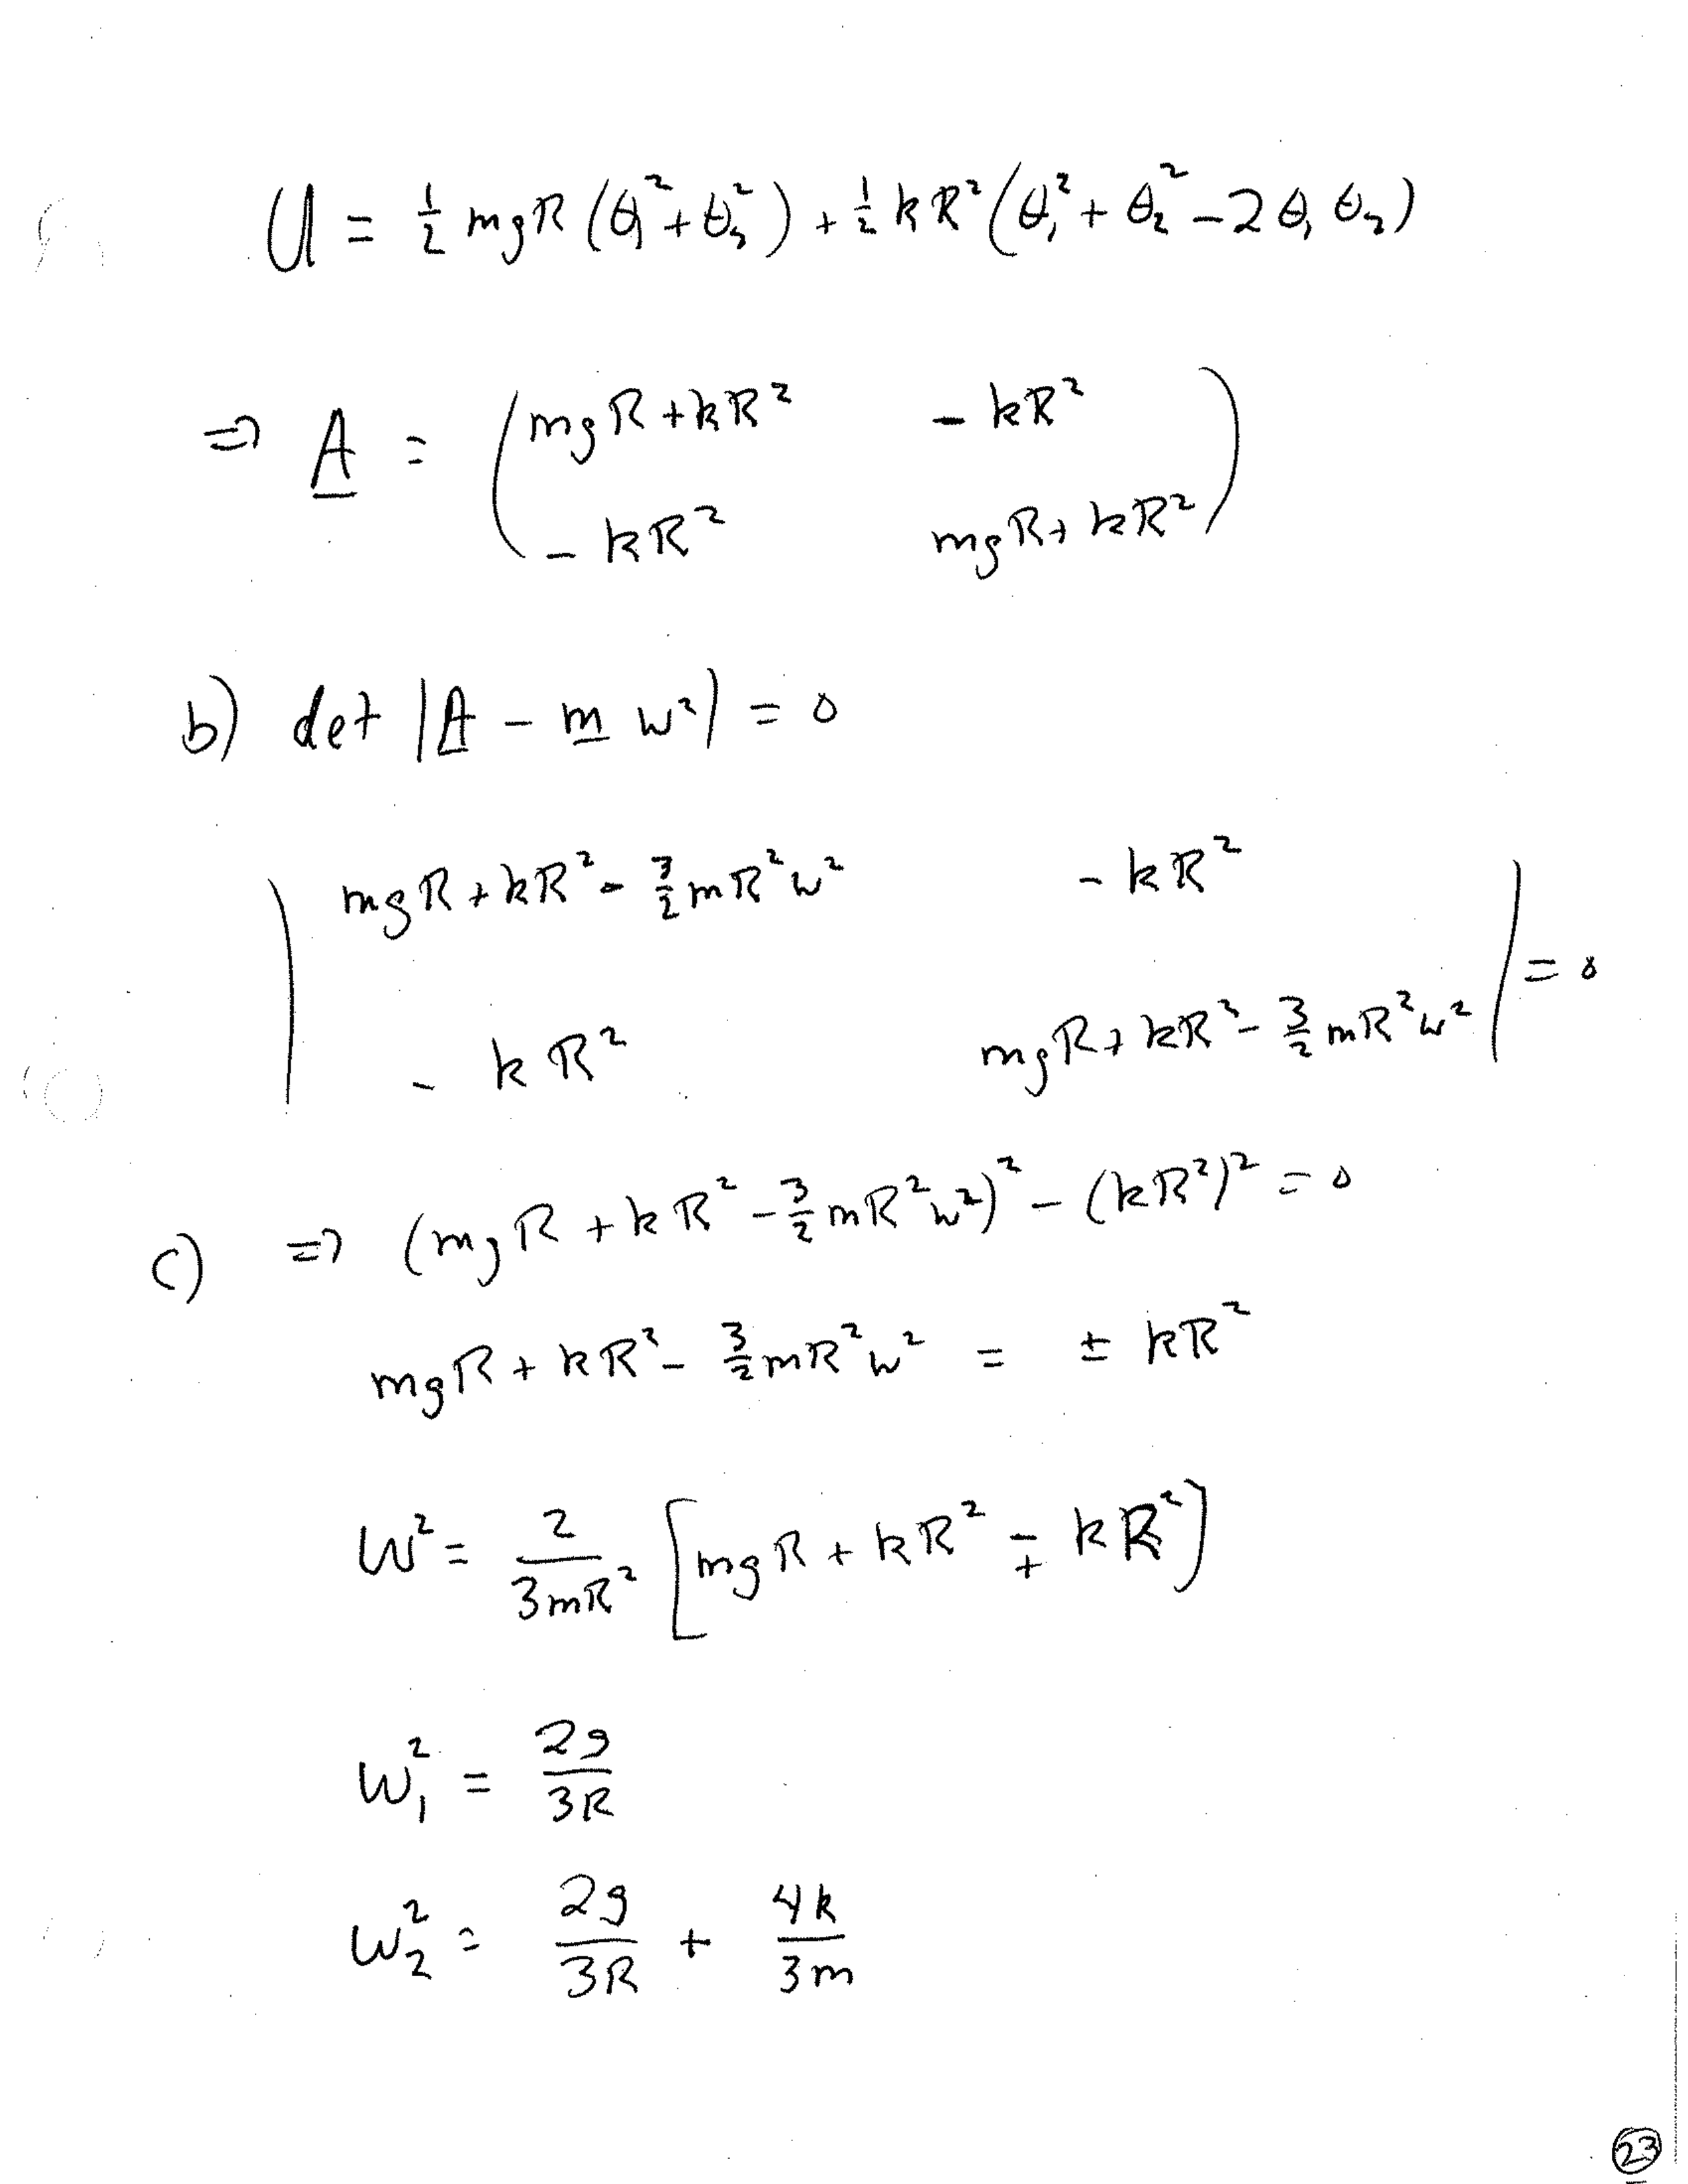 U = ½ mgR (θ₁² + θ₂²) + ½ kR² (θ₁² + θ₂² − 2θ₁θ₂)
⇒ A = ( mgR + kR²   − kR²
− kR²   mgR + kR² )
b) det |A − m w²| = 0
| mgR + kR² − 3/2 mR²w²   − kR²
− kR²   mgR + kR² − 3/2 mR²w² | = 0
c) ⇒ (mgR + kR² − 3/2 mR²w²)² − (kR²)² = 0
mgR + kR² − 3/2 mR²w² = ± kR²
w² = 2/3mR² [mgR + kR² ∓ kR²]
w₁² = 2g/3R
w₂² = 2g/3R + 4k/3m
23